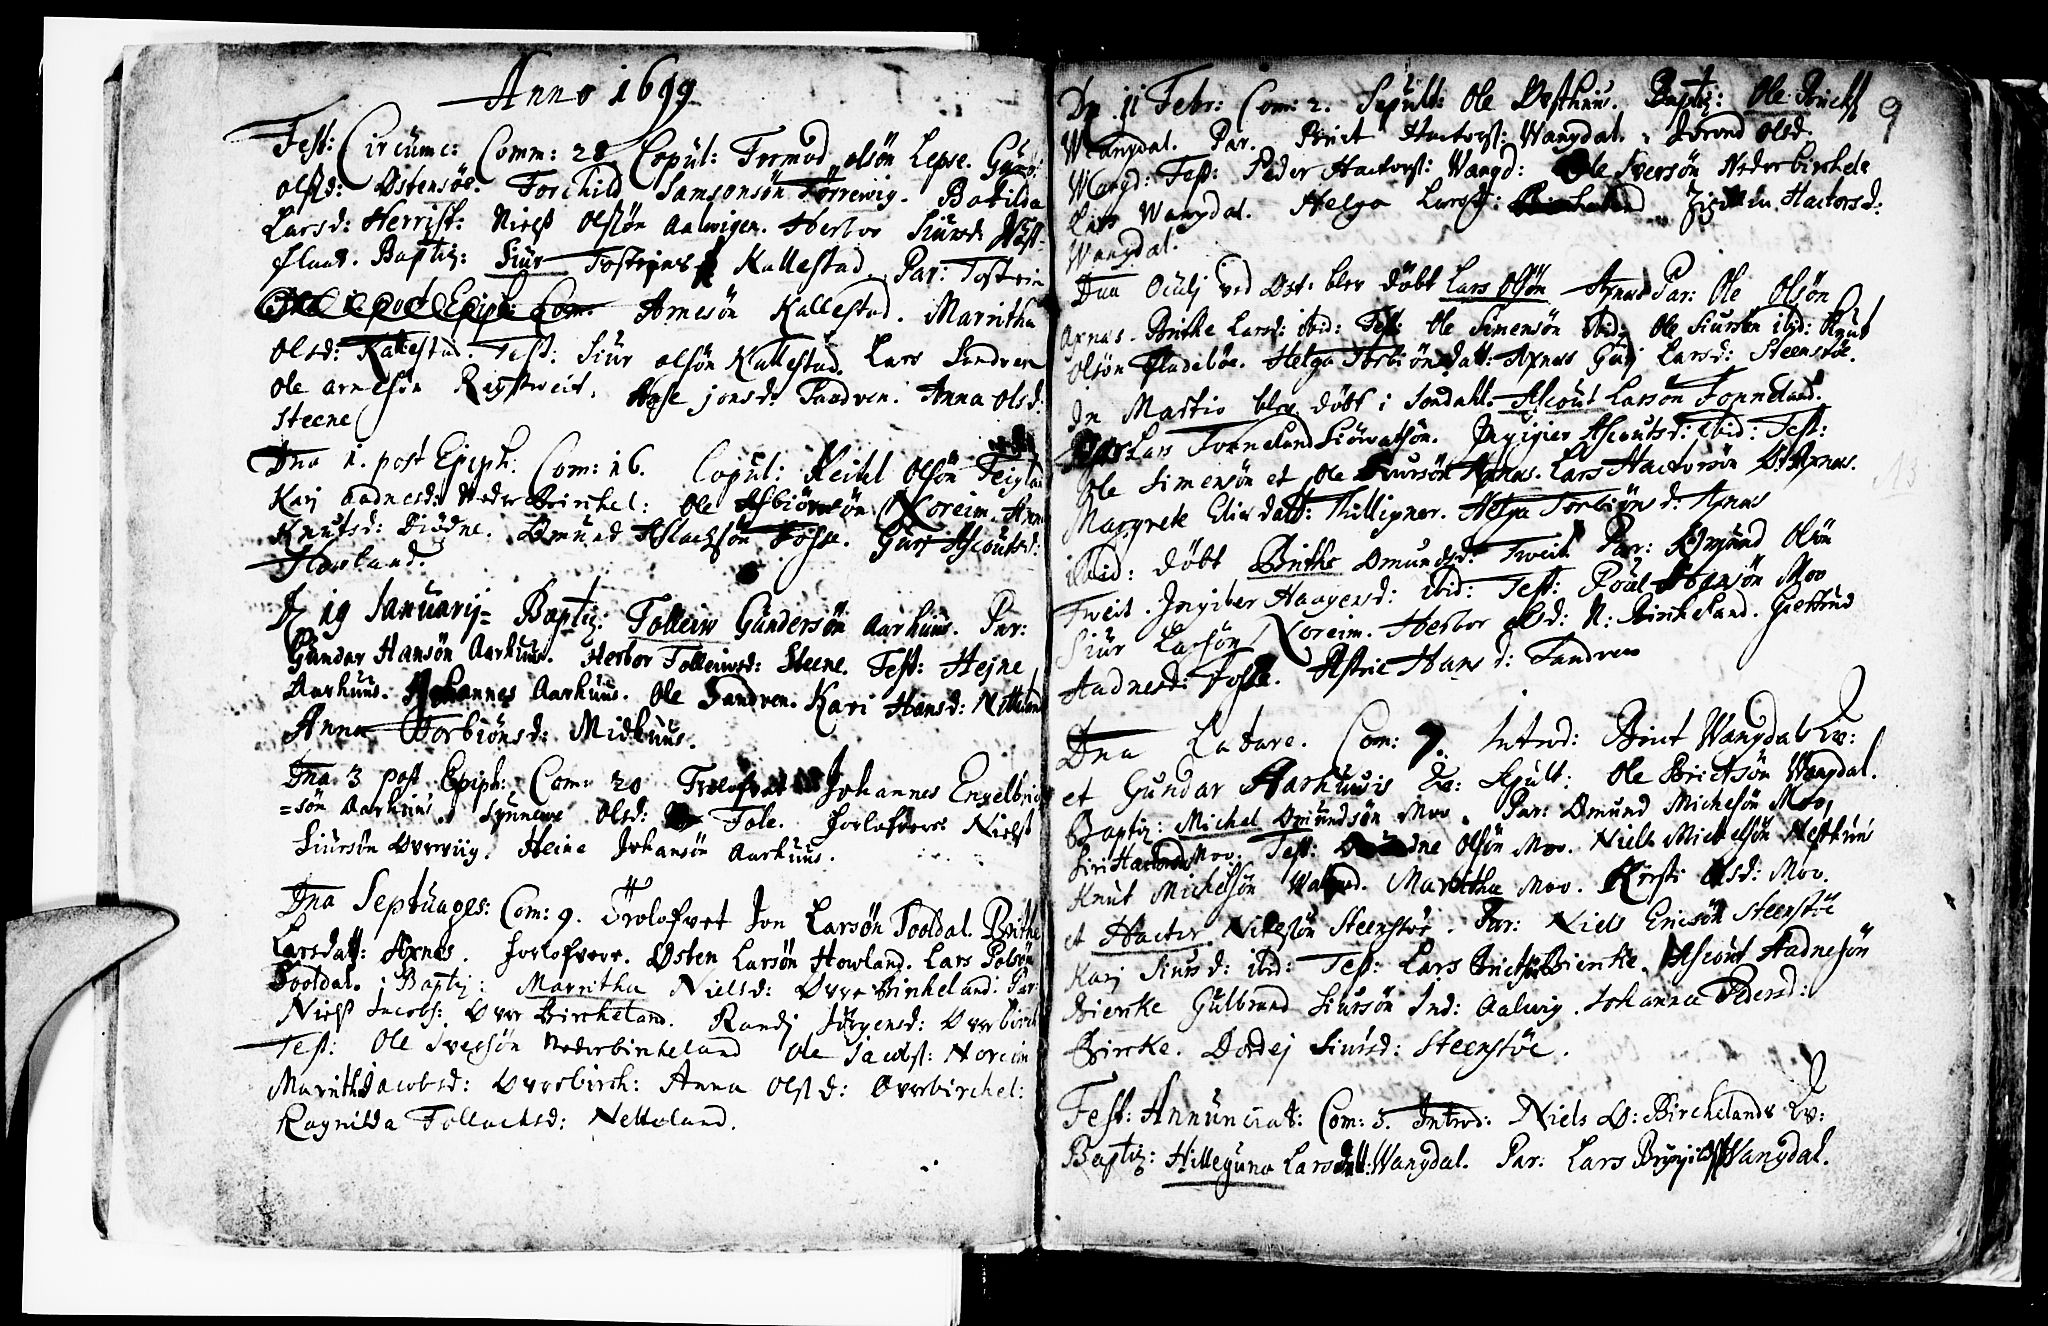 Anno 1699
Fest: Circumc: Comm: 28 Copul: Tormod olsön Lepse. Gunb:
olsd: Östensöe. Torchild Samsonsön Törrewig. Botilda
Larsd: Herrist: Nielß Olsön Aalwigen. Herbor Siursd: West-
flaad. Baptiz: Siur Tosteins Kallestad. Par: Tostein
Dna 1 post Epiph: Com: Arnesön Kallestad. Marritha
Olsd: Kallestad. Test: Siur olsön Kallestad. Lars Sandven
Ole arnesön Regstweit. Aase jonsd: Sandven. Anna olsd:
Steene
Dna 1. post Epiph. Com: 16. Copul: Keitel Olsön Teigla
Karj Aadnesd: Neder Birchel: Ole Asbiörnsön Noreim. Ann
Knutsd: Diödne. Omund Aslachsön Fosse. Gurj Ascoutsd:
Howland.
D 19 Januarij Baptiz: Tolleiw Gundersön Aarhuus. Par:
Gundar Hansön Aarhuus. Herbor Tolleiwsd: Steene. Test: Hejne
Aarhuus. Johannes Aarhuus. Ole Sandven. Kari Hansd: Netteland
Anna Torbiönsd: Midhuus.
Dna 3 post Epiph: Com: 20 Trolofvet Johannes Engelbric
=sön Aarhuus. Synnewe Olsd: Tole. forlofvere Nielß
Siursön Överviig. Heine Johansön Aarhuus.
Dna Septuages: Com: 9. Trolofvet Jon Larsön Sooldal. Brithe
Larsdatt: Axnes. forlofvere. Östen Larsön Howland. Lars Polsön
Sooldal. Baptiz: Marritha Nielsd: Övre Birkeland: Par:
Nielß Jacobs: Över Bircheland. Randj Jörgensd: Överbirch
Test: Ole Iversön Nederbirkeland Ole Jacobs: Noreim
Maritha Jacobsd: Överbirch: Anna Olsd: Överbirchel:
Ragnilda Tollachsd: Netteland.
9
Dn 11 Febr: Com: 2. Sepult: Ole Östhuus. Baptiz: Ole Bricts
Wangdal. Par. Brict Hactors: Wangdal. Jorond Olsd:
Wangd: Test: Peder Hactors: Wangd: Ole Iversön Nederbirkele
Lars Wangdal. Helga Larsd: Hactorsd:
Wangdal.
Dna Oculj ved Öst: blev döbt Lars Olsön Axnes Par: Ole Olsön
Axnes. Brithe Larsd: ibid: Test: Ole Simensön ibid: Ole Siursön ibid: Knut
Olsön Fladeböe. Helga Torbiönsdatt: Axnes Gurj Larsd: Steenstöe.
In Martio blev döbt i Sondahl. Ascout Larsön Fonneland.
Par: Lars Fonneland Siöwatsön. Ingigier Ascoutsd: ibid: Test:
Ole Simensön et Ole Siursön Axnes. Lars Hactorsön Axnes.
Margrete Elisdatt: Thillipner. Helga Torbiönsd: Axnes
ibid: döbt Brithe Omundsd: Tweit Par: Omund Olsön
Tweit. Ingiber Haagensd: ibid: Test: Poul Moo
Siur Larsön Noreim. Herbor olsd: N: Birckeland. Giertrud
Aadnesd: Fosse. Astrie Hansd: Sandven
Dna Latare. Com: 7. Introd: Brict Wangdals Qv:
et Gundar Aarhuuis Qv: Sepult: Ole Brictsön Wangdal.
Baptiz: Michel Omundsön Moo. Par: Omund Michelsön Moo,
Siri Hactorsd: Moo. Test: Olsön Moo. Niels Michelsön Nesthuus
Knut Michelsön Maritha Moo. Kirsti Olsd: Moo.
et Hactor Nielsön Steenstöe. Par: Niels Ericsön Steenstöe
Karj Siursd: ibid: Test: Lars Brictsön Biercke. Ascout Aadnesön
Biercke Gulbrand Siursön Ind: Aalwig. Johanna Pedersd:
Bircke. Dordej Siursd: Steenstöe.
Fest: Annunciat: Com: 5. Introd: Niels Ö: Birchelands Qv:
Baptiz: Hilleguna Larsdatt: Wangdal. Par: Lars Brynilds Wangdal.